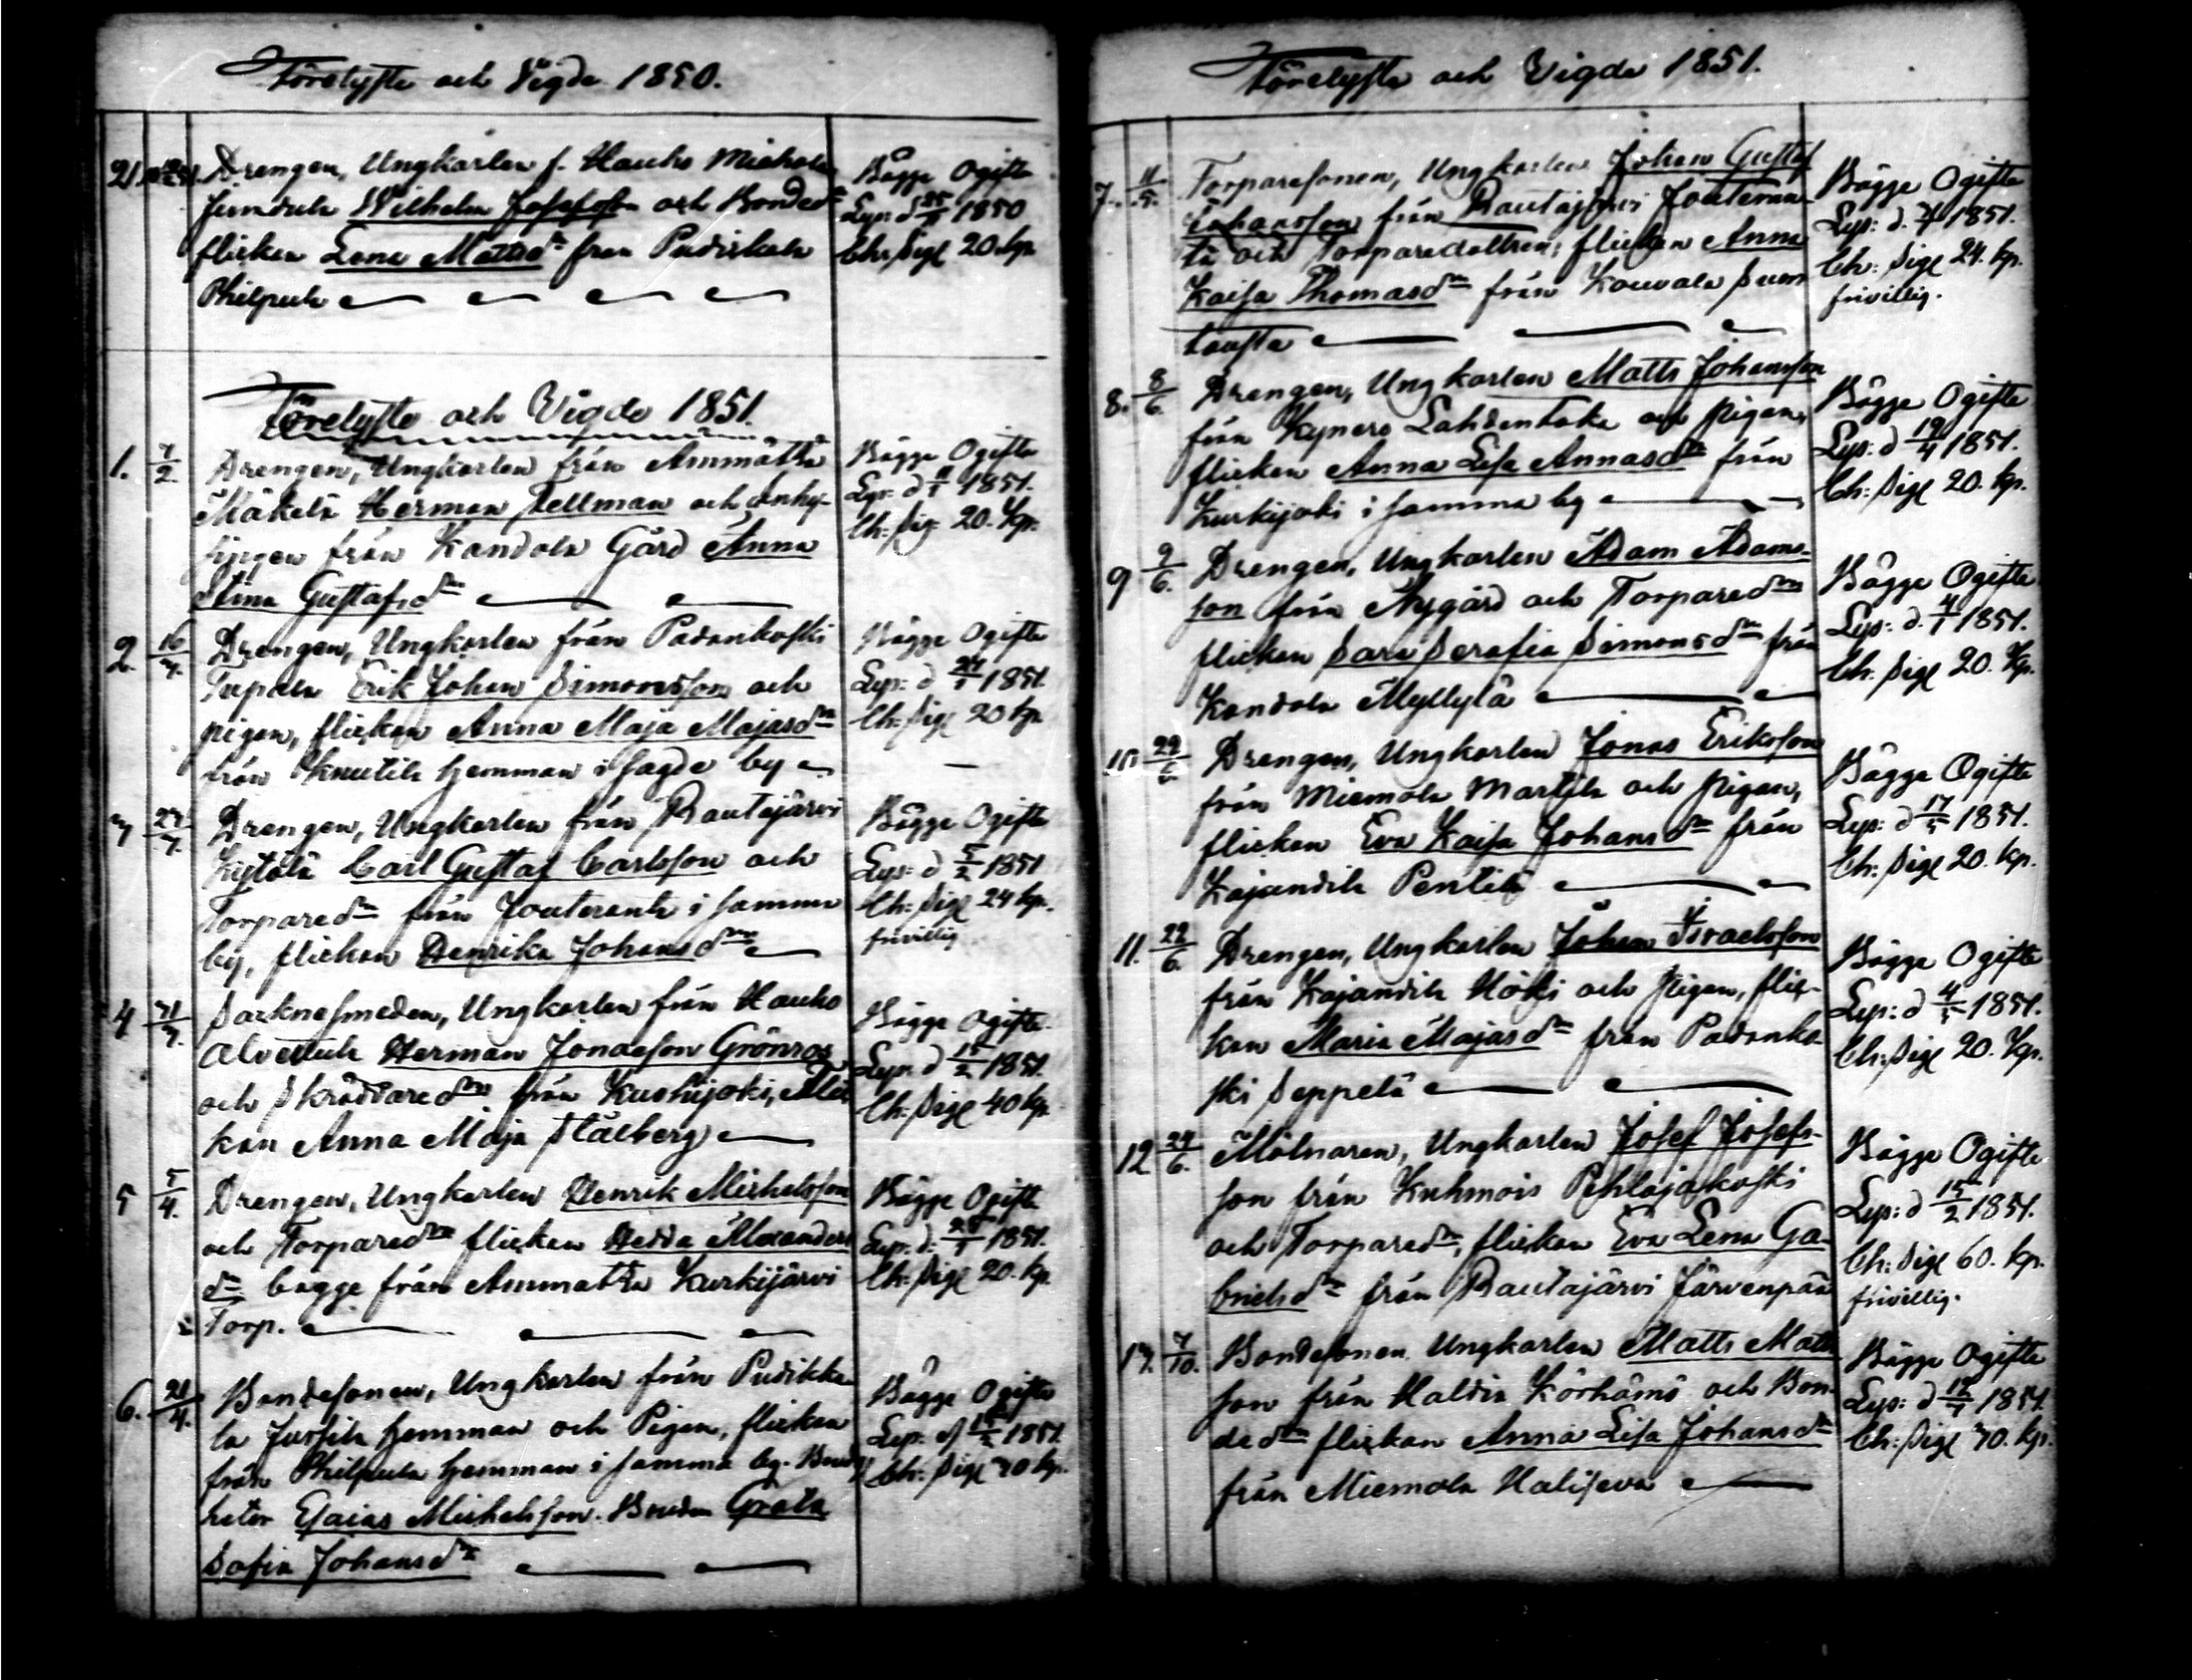 Förelyste och Vigde 1850.
21 Drengen, Ungkarlen f. Hauho Miehola
Wilhelm Josefsson och Bonded:r
flickan Lena Mattsd:r från Pudickala
Philpula
Bägge Ogifte
Lys. d 25/ 1850
Ch: Sigl 20 kp.
Förelyste och Vigde 1851.
1. 7/2. Drengen, Ungkarlen från Ammättä
Mäkelä Herman Tellman och inhy-
singen från Kandola Gård Anna
Stina Gustafsd:r
Bägge Ogifte
Lys: d 11/1 1851.
Ch: Sig 20. Kp.
2. 16/3. Drengen, Ungkarlen från Padankoski
Tupala Erik Johan Simonsson och
pigan, flickan Anna Maja Majasd:r
från Knutila hemman i sagde by
Bägge Ogifte
Lys: d 1851.
Ch: Sigl 20 kp.
3 23/3. Drengen, Ungkarlen från Rautajärvi
Kytölä Carl Gustaf Carlsson och
Torpared:r från Jouteranta i samma
by, flickan Henrika Johansd:r
Bägge Ogifte
Lys: d 5/2 1851
Ch: Sigl 24 kp.
frivillig
4 31/3. Socknesmeden, Ungkarlen från Hauho
Alvettula Herman Jonasson Grönroos
och Skräddared:r från Kurkijoki, flic
kan Anna Maja Stålberg
Bägge Ogifte
Lys. d 15/2 1851.
Ch: Sigl 40 kp
5 5/4. Drengen, Ungkarlen Henrik Michelsson
och Torpared:r flickan Hedda Alexanders
d:r bägge från Ammättä Kurkijärvi
Torp.
Bägge Ogifte
Lys. d. 1851.
Ch: Sigl 20. kp
6. 21/4. Bondesonen, Ungkarlen från Pudikka
la Jussila hemman och Pigan, flickan
från Philpula hemman i samma by. Brudg
heter Esaias Michelsson. Bruden Greta
Sofia Johansd:r
Bägge Ogifte
Lys. d 1851.
Ch: Sigl 30 kp.
Förelyste och Vigde 1851.
7. 11/5. Torparesonen, Ungkarlen Johan Gustaf
Johansson från Rautajärvi Jouteran-
ta och Torparedottren, flickan Anna
Kaisa Thomasd:r från Kouvala Suon
tausta
Bägge Ogifte
Lys: d. 1851.
Ch: Sigl 24. kp.
frivillig.
8. 8/6. Drengen, Ungkarlen Matts Johansson
från Kynerö Lahdentaka och pigan,
flickan Anna Lisa Annasd:r från
Kurkijoki i samma by
Bägge Ogifte
Lys: d 19/4 1851.
Ch: Sigl 20. kp.
9 9/6. Drengen, Ungkarlen Adam Adams-
son från Nygård och Torpared:r
flickan Sara Serafia Simonsd:r från
Kandola Myllylä
Bägge Ogifte
Lys: d. 4/1 1851.
Ch: Sigl 20. Kp.
10 22/6. Drengen, Ungkarlen Jonas Eriksson
från Miemola Martila och pigan,
flickan Eva Kaisa Johansd:r från
Kajandila Pentilä
Bägge Ogifte
Lys: d 17/5 1851.
Ch: Sigl 20. kp.
11. 22/6. Drengen, Ungkarlen Johan Israelsson
från Kajandila Höki och Pigan, flic-
kan Maria Majasd:r från Padanko
ski Seppelä
Bägge Ogifte
Lys: d 4/5 1851.
Ch: Sigl 20. Kp.
12 24/6. Mölnaren, Ungkarlen Josef Josefs-
son från Kuhmois Pehlajakoski
och Torpared:r, flickan Eva Lena Ga-
brielsd:r från Rautajärvi Järvenpää
Bägge Ogifte
Lys: d 15/2 1851.
Ch: Sigl 60. kp.
frivillig.
13. 7/10. Bondesonen Ungkarlen Matts Matts
son från Haldia Körhämö och Bon-
ded:r flickan Anna Lisa Johansd:r
från Miemola Halijeva
Bägge Ogifte
Lys: d 1851.
Ch: Sigl 30. kp.